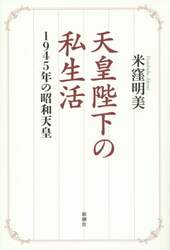 天皇陛下の
私生活
1945年の昭和天皇
米窪明美
新潮社